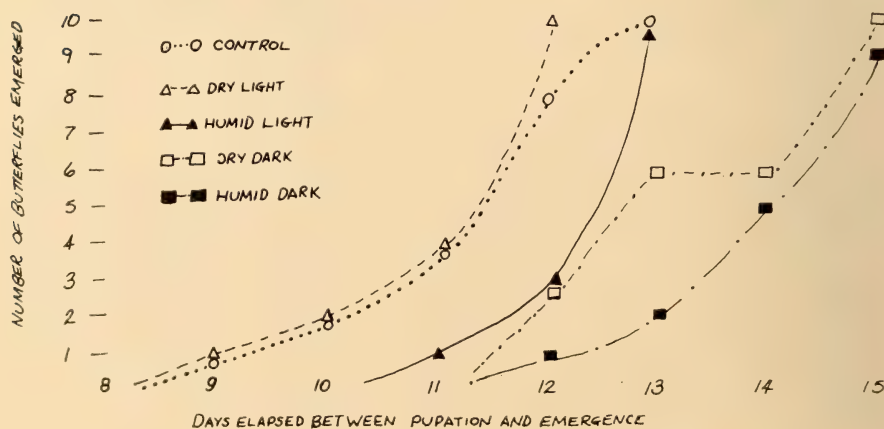 NUMBER OF BUTTERFLIES EMERGED
10
9
8
7
6
5
4
3
2
1
CONTROL
DRY LIGHT
HUMID LIGHT
DRY DARK
HUMID DARK
8 9 10 11 12 13 14 15
DAYS ELAPSED BETWEEN PUPATION AND EMERGENCE